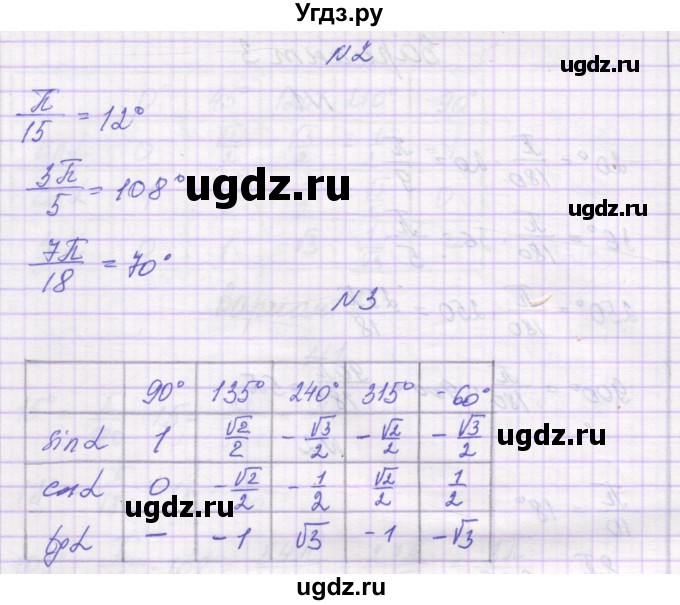 Угдз.ру
N2
ugdz.ru
π/15 = 12°
3π/5 = 108°
ugdz.ru
ugdz.ru
7π/18 = 70°
N3
90° 135° 240° 315° -60°
sinα 1 √2/2 -√3/2 -√2/2 -√3/2
ugdz.ru
cosα 0 -√2/2 -1/2 √2/2 1/2
tgα — -1 √3 -1 -√3
ugdz.ru
ugdz.ru